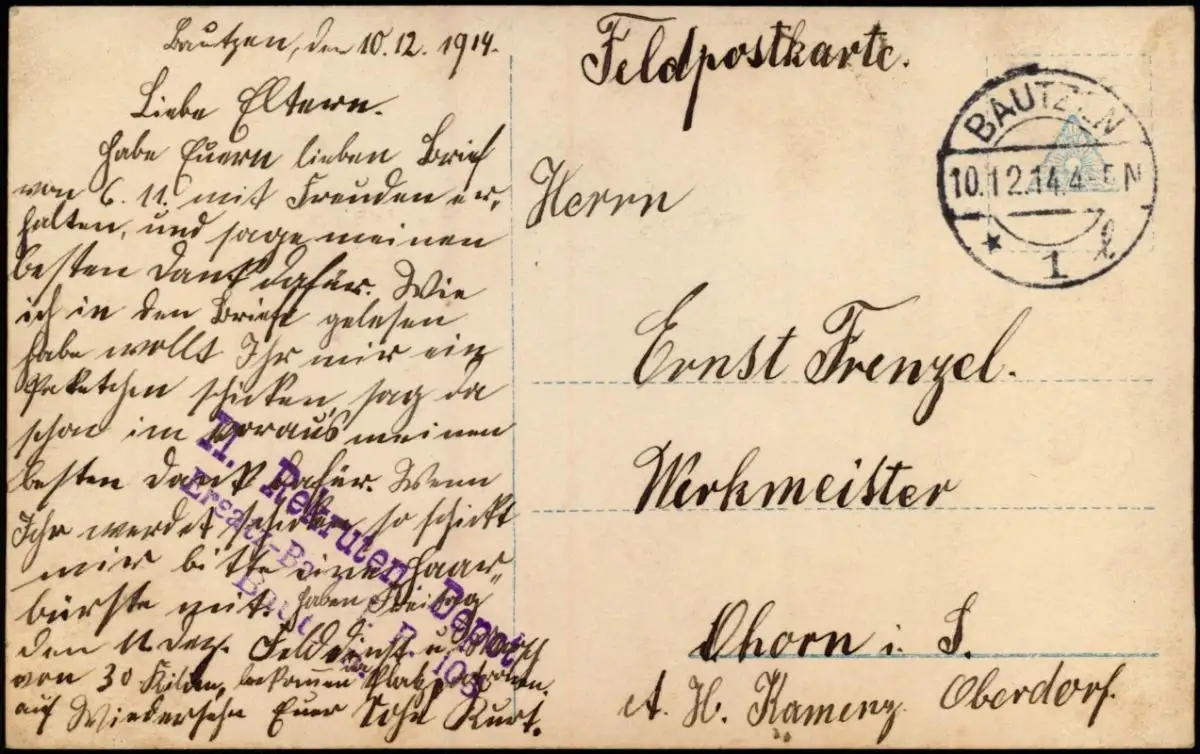 Bautzen, den 10.12.1914.
Liebe Eltern.
Habe Euern lieben Brief
von 6. 11. mit Freuden er,
halten, und sage meinen
besten Dank dafür. Wie
ich in den Brief gelesen
habe wollt Ihr mir ein
Paketchen schicken, sag da
schon im voraus meinen
besten Dank dafür. Wenn
Ihr werdet schicken so schickt
mir bitte eine Haar„
bürste mit. Haben Freitag
den 11 Dez. Felddienst u.
von 30 Kilom, bekommen Platzpatronen.
auf Wiedersehn Euer Sohn Kurt.
II. Rekruten-Depot
Ersatz-Bat. I. R. 103
Bautzen.
Feldpostkarte.
BAUTZEN
10.12.14.4-5N
* 1 l
Herrn
Ernst Frenzel.
Werkmeister
Ohorn i. S.
A. H. Kamenz Oberdorf.